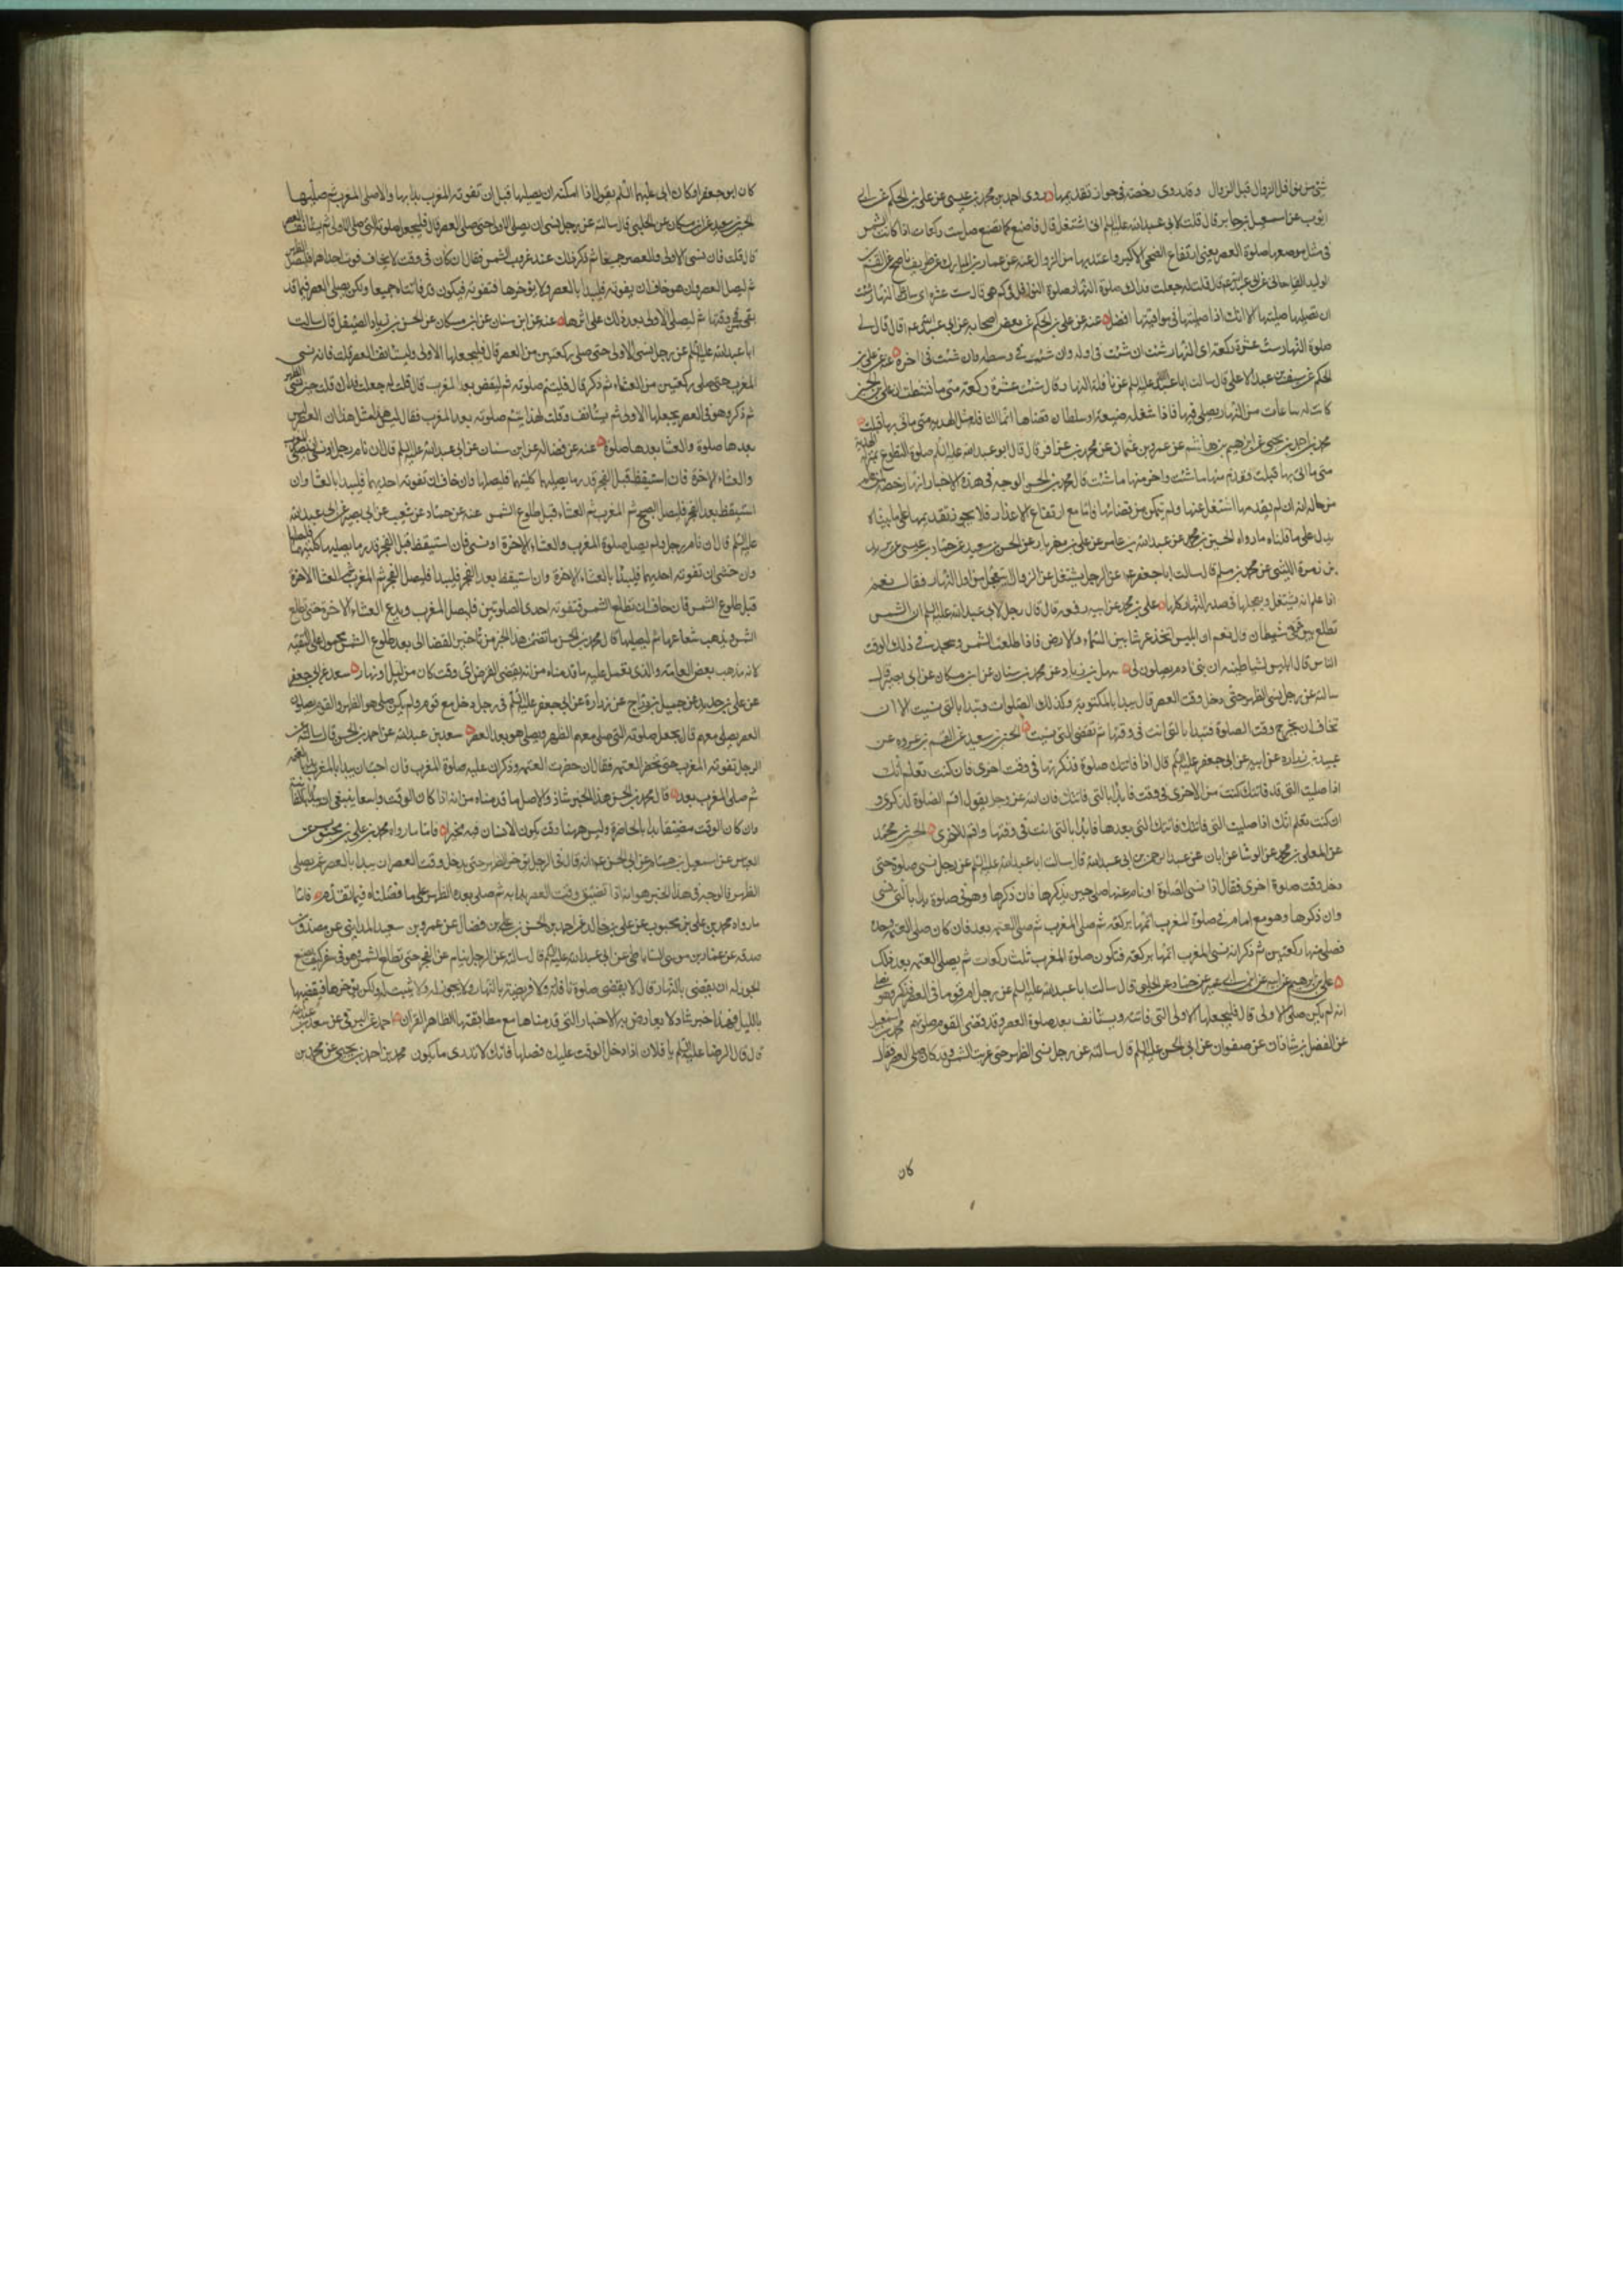 شئ من نوافل الزوال قبل الزوال وقد روى رخصة فى جواز تقديمها روى احمد بن محمد بن عيسى عن على بن الحكم عن ابى
ايوب عن اسمعيل بن جابر قال قلت لابى عبدالله عليه السلم انى اشتغل قال فاصنع كما نصنع صل ست ركعات اذا كانت الشمس
فى مثل موضعها صلوة العصر يعنى ارتفاع الضحى الاكبر واعتد بها من الزوال عنه عن عمار بن المبارك عن ظريف بن ناصح عن القسم بن
الوليد الغفارى عن ابى عبدالله قال قلت له جعلت فداك صلوة النهار صلوة النوافل فى كم هى قال ست عشرة اى ساعات النهار شئت
ان تصليها صليتها الا انك اذا صليتها فى مواقيتها افضل عنه عن على بن الحكم عن بعض اصحابه عن ابى عبدالله قال قال لى
صلوة النهار ست عشرة ركعة اى النهار شئت ان شئت فى اوله وان شئت فى وسطه وان شئت فى اخره عنه عن على بن
الحكم عن سيف بن عبد الاعلى قال سالت ابا عبدالله عليه السلم عن نافلة النهار قال ست عشرة ركعة متى ما نشطت ان على بن الحسين
كانت له ساعات من النهار يصلى فيها فاذا شغله ضيعة او سلطان قضاها انما النافلة مثل الهدية متى ما اتى بها قبلت
محمد بن احمد بن يحيى عن ابرهيم بن هاشم عن عمرو بن عثمان عن محمد بن عذافر قال قال ابو عبدالله عليه السلم صلوة التطوع بمنزلة الهدية
متى ما اتى بها قبلت فقدم منها ما شئت واخر منها ما شئت قال محمد بن الحسن الوجه فى هذه الاخبار انها رخصة لمن علم
من حاله انه ان لم يقدمها اشتغل عنها ولم يتمكن من قضائها فاما مع ارتفاع الاعذار فلا يجوز تقديمها على ما بيناه
يدل على ما قلناه ما رواه الحسين بن محمد عن عبدالله بن عامر عن على بن مهزيار عن الحسن بن سعيد عن حماد بن عيسى عن
بن ضمرة الليثى عن محمد بن مسلم قال سالت ابا جعفر عن الرجل يشتغل عن الزوال ايعجل من اول النهار فقال نعم
اذا علم انه يشتغل فيعجلها فى صدر النهار كلها على بن محمد عن ابيه رفعه قال قال رجل لابى عبدالله عليه السلم ان الشمس
تطلع بين قرنى شيطان قال نعم ان ابليس اتخذ عرشا بين السماء والارض فاذا طلعت الشمس وسجد فى ذلك الوقت
الناس قال ابليس لشياطينه ان بنى ادم يصلون لى سهل بن زياد عن محمد بن سنان عن ابن مسكان عن ابى بصير قال
سالته عن رجل نسى الظهر حتى دخل وقت العصر قال يبدا بالمكتوبة وكذلك الصلوات تبتدا بالتى نسيت الا ان
تخاف ان يخرج وقت الصلوة فتبدا بالتى انت فى وقتها ثم تقضى التى نسيت الحسين بن سعيد عن القسم بن عروة عن
عبيد بن زرارة عن ابيه عن ابى جعفر عليه السلم قال اذا فاتتك صلوة فذكرتها فى وقت اخرى فان كنت تعلم انك
اذا صليت التى قد فاتتك كنت من الاخرى فى وقت فابدا بالتى فاتتك فان الله عز وجل يقول اقم الصلوة لذكرى و
ان كنت تعلم انك اذا صليت التى فاتتك فاتتك التى بعدها فابدا بالتى انت فى وقتها واقم الاخرى الحسين بن محمد
عن المعلى بن محمد عن الوشا عن ابان عن عبد الرحمن بن ابى عبدالله قال سالت ابا عبدالله عليه السلم عن رجل نسى صلوة حتى
دخل وقت صلوة اخرى فقال اذا نسى الصلوة او نام عنها صلى حين يذكرها فان ذكرها وهو فى صلوة بدا بالتى نسى
وان ذكرها وهو مع امام فى صلوة المغرب اتمها بركعة ثم صلى المغرب ثم صلى العتمة بعد فان كان صلى العتمة وحده
فصلى منها ركعتين ثم ذكر انه نسى المغرب اتمها بركعة فتكون صلوة المغرب ثلث ركعات ثم يصلى العتمة بعد ذلك
على بن ابرهيم عن ابيه عن ابن ابى عمير عن حماد عن الحلبى قال سالت ابا عبدالله عليه السلم عن رجل ام قوما فى العصر فذكر وهو يصلى
انه لم يكن صلى الاولى قال فليجعلها الاولى التى فاتته ويستانف بعد صلوة العصر وقد قضى القوم صلوتهم محمد بن اسمعيل
عن الفضل بن شاذان عن صفوان عن ابى الحسن عليه السلم قال سالته عن رجل نسى الظهر حتى غربت الشمس وقد كان صلى العصر فقال
كان
كان ابو جعفر او كان ابى عليهما السلم يقول اذا امكنه ان يصليها قبل ان تفوته المغرب بدا بها والا صلى المغرب ثم صليها
الحسين بن سعيد عن ابن مسكان عن الحلبى قال سالته عن رجل نسى ان يصلى الاولى حتى صلى العصر قال فليجعل صلوته التى صلى الاولى ثم يستانف العصر
قال قلت فان نسى الاولى والعصر جميعا ثم ذكر ذلك عند غروب الشمس فقال ان كان فى وقت لا يخاف فوت احداهما فليصل الظهر
ثم ليصل العصر وان هو خاف ان يفوته فليبدا بالعصر ولا يؤخرها فتفوته فيكون قد فاتتاه جميعا ولكن يصلى العصر فيما قد
بقى من وقتها ثم ليصلى الاولى بعد ذلك على اثرها عنه عن ابن سنان عن ابن مسكان عن الحسن بن زياد الصيقل قال سالت
ابا عبدالله عليه السلم عن رجل نسى الاولى حتى صلى ركعتين من العصر قال فليجعلها الاولى وليستانف العصر قلت فانه نسى
المغرب حتى صلى ركعتين من العشاء ثم ذكر قال فليتم صلوته ثم ليقض بعد المغرب قال قلت له جعلت فداك قلت حين نسى الظهر
ثم ذكر وهو فى العصر يجعلها الاولى ثم يستانف وقلت لهذا يتم صلوته بعد المغرب فقال ليس هذا مثل هذا ان العصر ليس
بعدها صلوة والعشا بعدها صلوة عنه عن فضالة عن ابن سنان عن ابى عبدالله عليه السلم قال ان نام رجل او نسى ان يصلى المغرب
والعشاء الاخرة فان استيقظ قبل الفجر قدر ما يصليهما كلتيهما فليصلهما وان خاف ان تفوته احديهما فليبدا بالعشا وان
استيقظ بعد الفجر فليصل الصبح ثم المغرب ثم العشاء قبل طلوع الشمس عنه عن حماد عن شعيب عن ابى بصير عن ابى عبدالله
عليه السلم قال ان نام رجل ولم يصل صلوة المغرب والعشاء الاخرة او نسى فان استيقظ قبل الفجر قدر ما يصليهما كلتيهما فليصلهما
وان خشى ان تفوته احديهما فليبدا بالعشاء الاخرة وان استيقظ بعد الفجر فليبدا فليصل الفجر ثم المغرب ثم العشا الاخرة
قبل طلوع الشمس فان خاف ان تطلع الشمس فتفوته احدى الصلوتين فليصل المغرب ويدع العشاء الاخرة حتى تطلع
الشمس ويذهب شعاعها ثم ليصليها قال محمد بن الحسن ما تضمن هذا الخبر من تاخير القضا الى بعد طلوع الشمس محمول على التقية
لانه مذهب بعض العامة والذى نعمل عليه ما قدمناه من انه يقضى الفرض اى وقت كان من ليل او نهار سعد عن ابى جعفر
عن على بن حديد عن جميل بن دراج عن زرارة عن ابى جعفر عليه السلم فى رجل دخل مع قوم ولم يكن صلى هو الظهر والقوم يصلون
العصر يصلى معهم قال يجعل صلوته التى صلى معهم الظهر ويصلى هو بعد العصر سعد بن عبدالله عن احمد بن الحسن قال سالته عن
الرجل تفوته المغرب حتى تحضر العتمة فقال ان حضرت العتمة وذكر ان عليه صلوة المغرب فان احب ان يبدا بالمغرب بدا
ثم صلى المغرب بعد قال محمد بن الحسن هذا الخبر شاذ والاصل ما قدمناه من انه اذا كان الوقت واسعا ينبغى ان يبدا بالفائتة
وان كان الوقت مضيقا بدا بالحاضرة وليس ههنا وقت يكون الانسان فيه مخيرا فاما ما رواه محمد بن على بن محبوب عن
العباس عن اسمعيل بن همام عن ابى الحسن انه قال فى الرجل يؤخر الظهر حتى يدخل وقت العصر ان يبدا بالعصر ثم يصلى
الظهر فالوجه فى هذا الخبر هو انه اذا تضيق وقت العصر بدا به ثم صلى بعده الظهر على ما فصلناه فيما تقدم فاما
ما رواه محمد بن على بن محبوب عن على بن خالد عن احمد بن الحسن بن على بن فضال عن عمرو بن سعيد المداينى عن مصدق بن
صدقه عن عمار بن موسى الساباطى عن ابى عبدالله عليه السلم قال سالته عن الرجل ينام عن الفجر حتى تطلع الشمس وهو فى سفر كيف يصنع
ايجوز له ان يقضى بالنهار قال لا يقضى صلوة نافلة ولا فريضة بالنهار ولا يجوز له ولا يثبت له ولكن يؤخرها فيقضيها
بالليل فهذا خبر شاذ لا يعارض به الاخبار التى قدمناها مع مطابقتها لظاهر القران احمد عن البرقى عن سعد بن
قال قال الرضا عليه السلم يا فلان اذا دخل الوقت عليك فصلها فانك لا تدرى ما يكون محمد بن احمد بن يحيى عن محمد بن